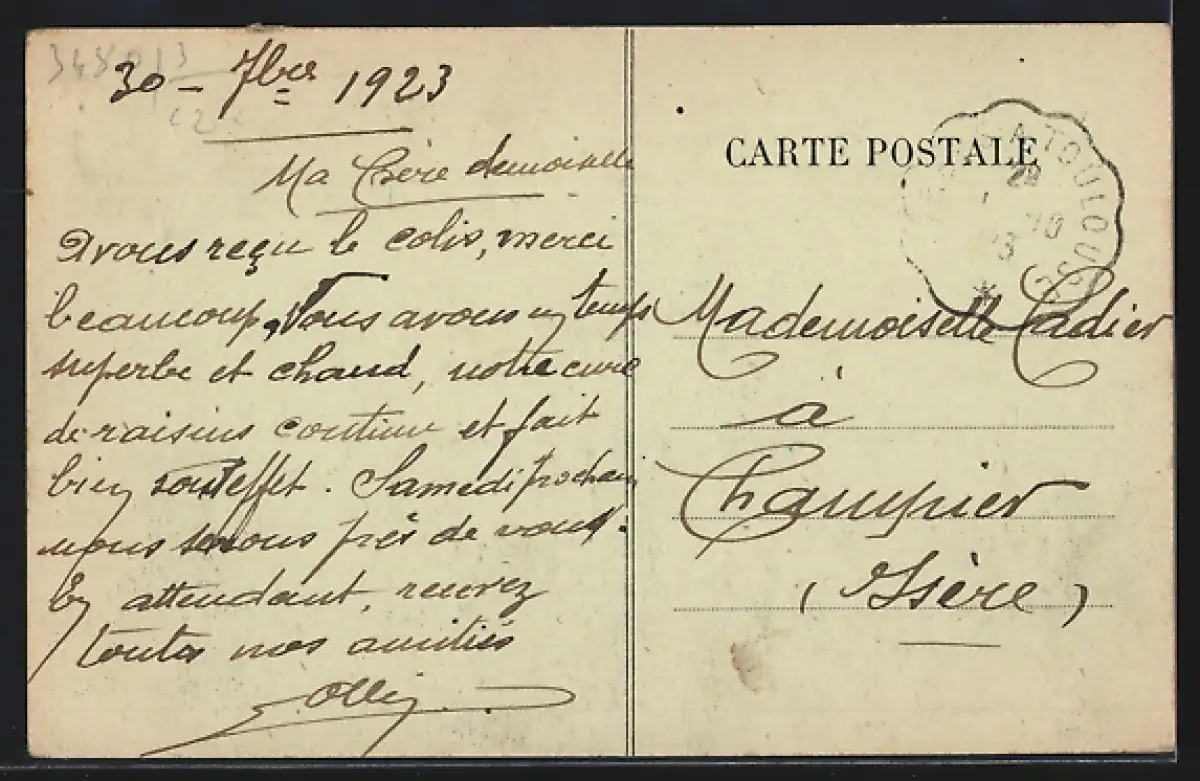 30 - 7bre 1923
Ma Chère demoiselle
Avons reçu le colis, merci
beaucoup, Nous avons un temps
superbe et chaud, notre cure
de raisins continue et fait
bien son effet. Samedi prochain
nous serons près de vous.
En attendant, recevez
toutes nos amitiés
CARTE POSTALE
A TOULOUSE
Mademoiselle Cadier
à
Champier
(Isère)